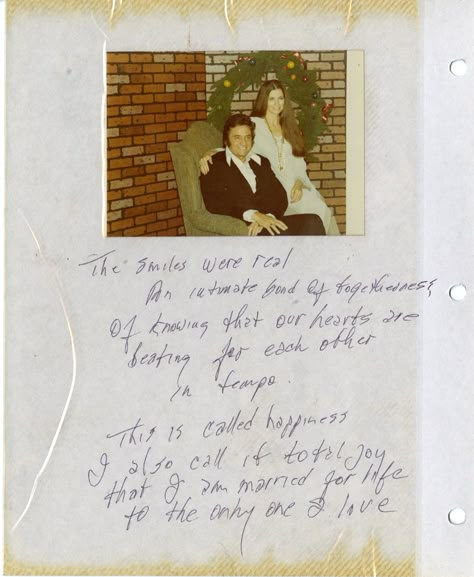 The smiles were real
An intimate bond of togetherness,
Of knowing that our hearts are
beating for each other
in tempo.
This is called happiness
I also call it total joy
that I am married for life
to the only one I love